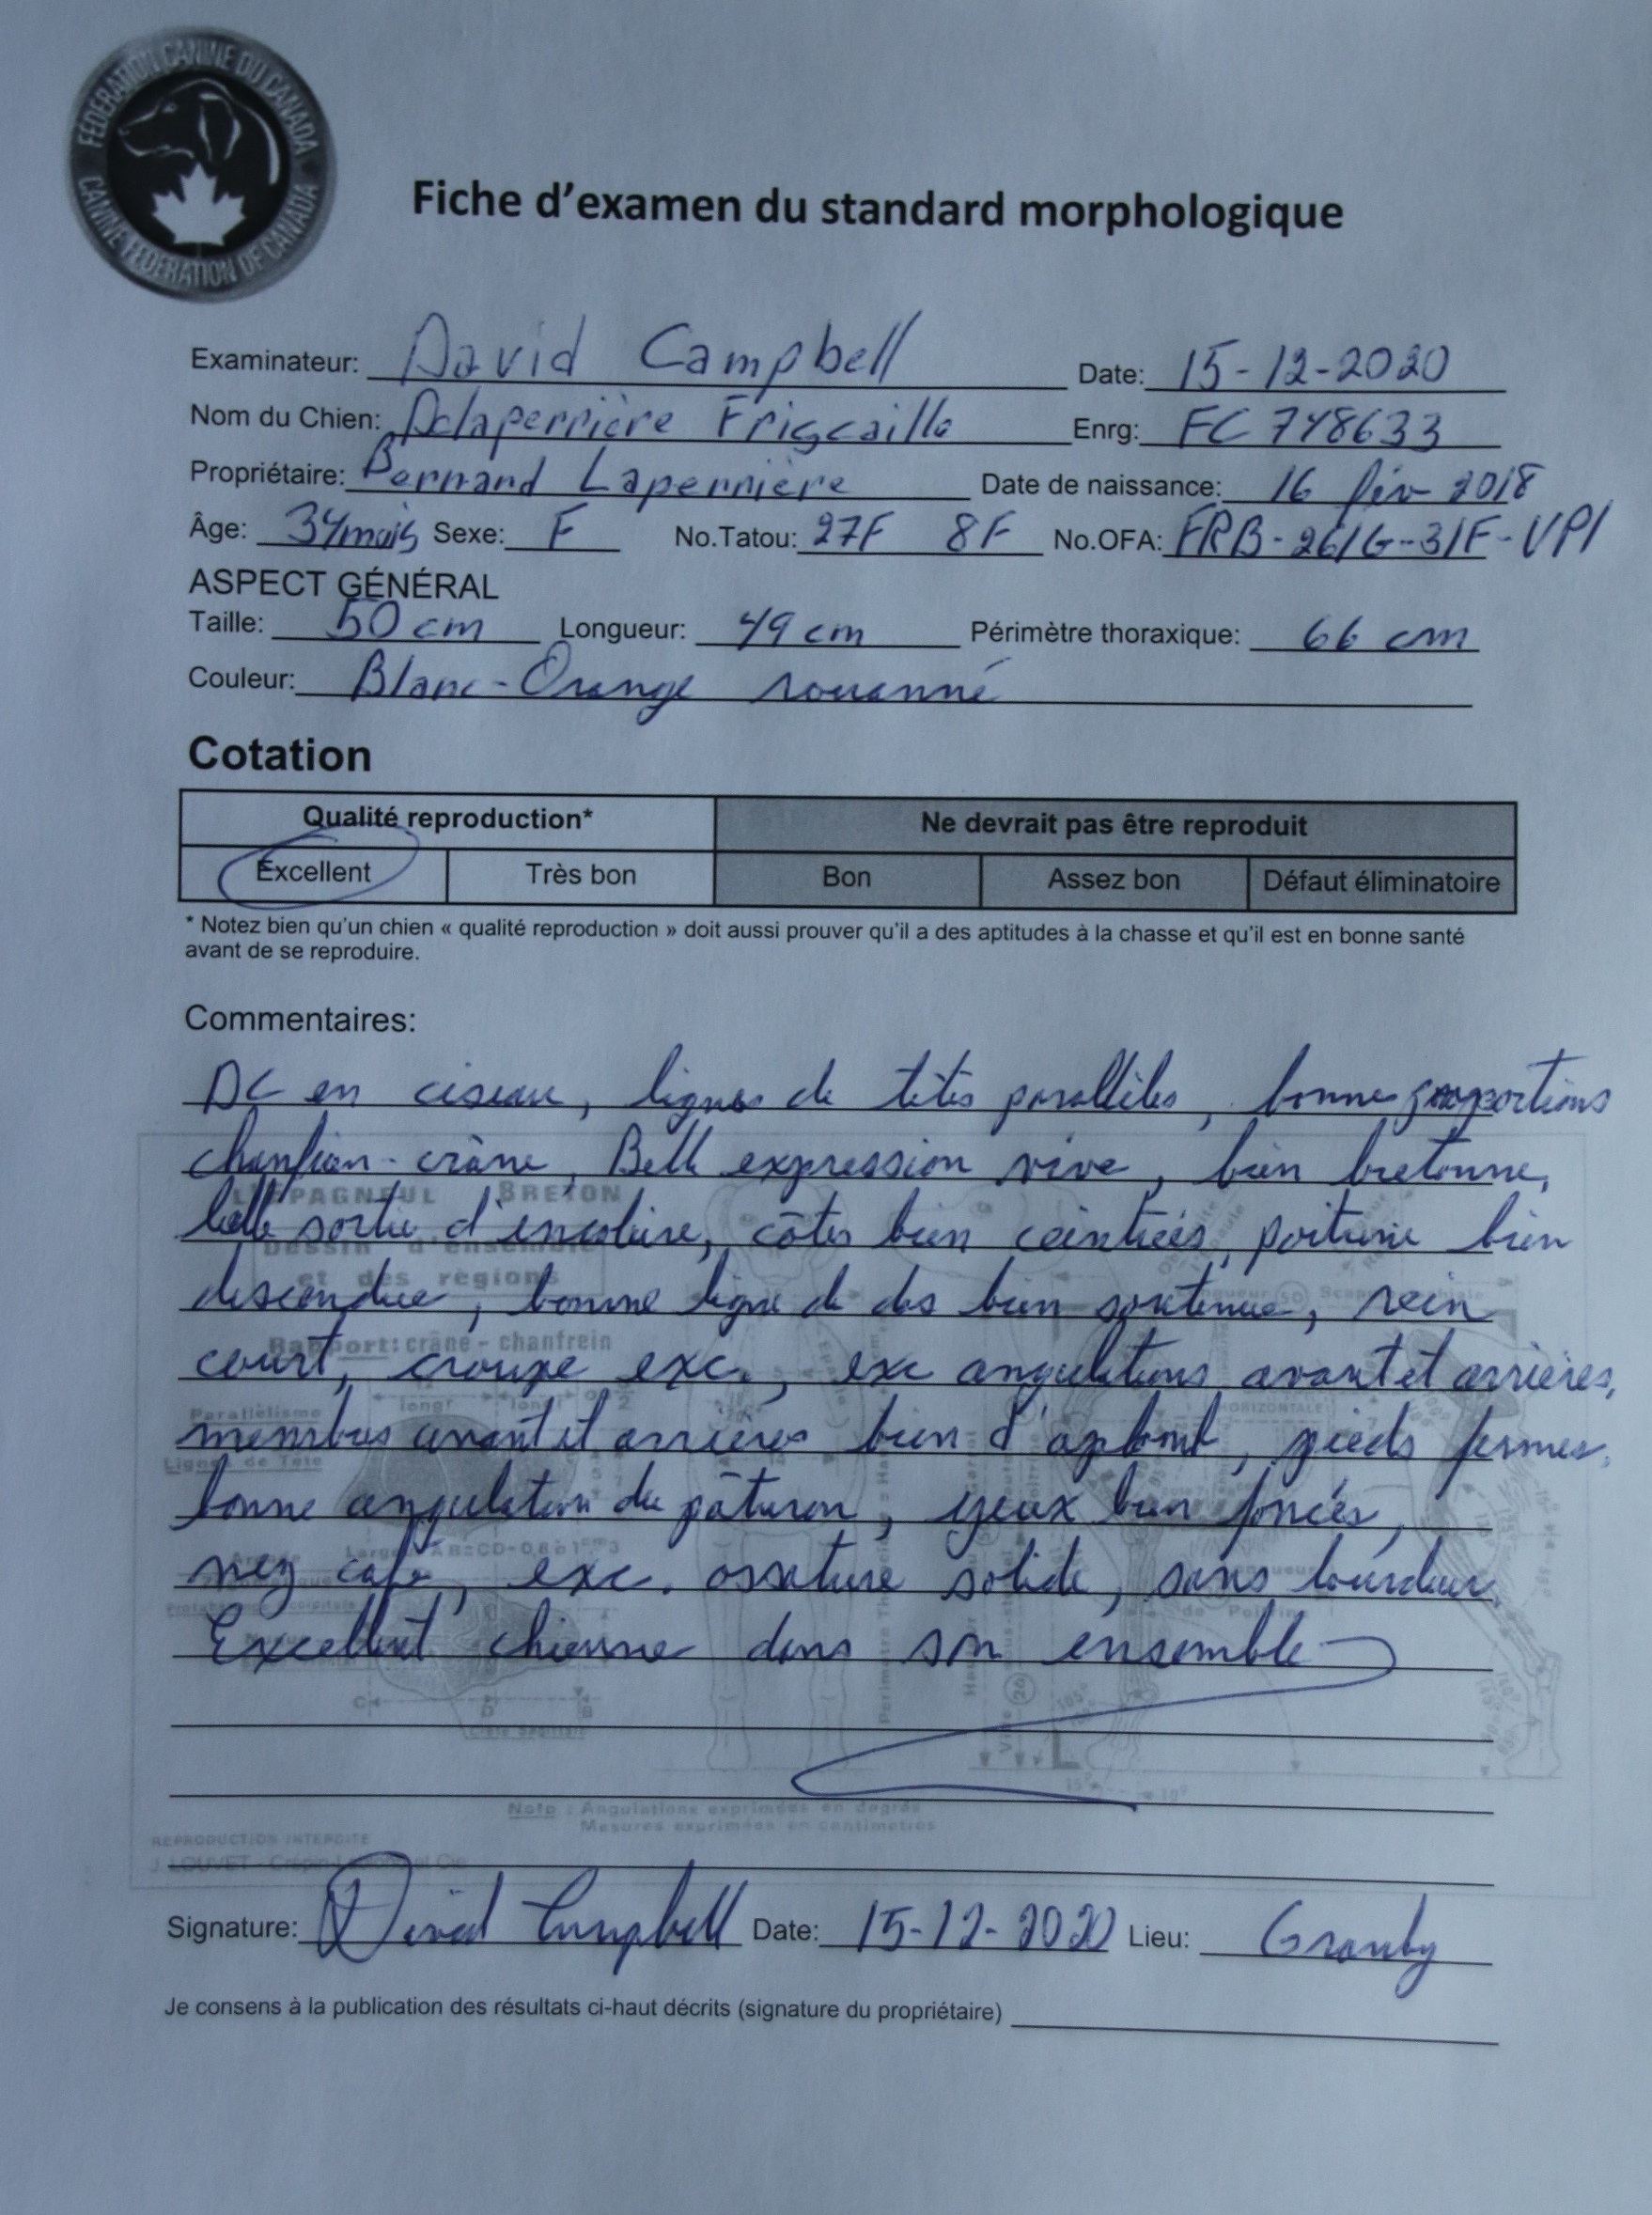 FEDERATION CANINE DU CANADA
CANINE FEDERATION OF CANADA
Fiche d'examen du standard morphologique
Examinateur: David Campbell Date: 15-12-2020
Nom du Chien: Delaperrière Frigcaille Enrg: FC 748633
Propriétaire: Bernard Laperrière Date de naissance: 16 fév 2018
Âge: 34 mois Sexe: F No.Tatou: 27F 8F No.OFA: FRB-261G-31F-VPI
ASPECT GÉNÉRAL
Taille: 50 cm Longueur: 49 cm Périmètre thoraxique: 66 cm
Couleur: Blanc-Orange rouanné
Cotation
Qualité reproduction* Ne devrait pas être reproduit
Excellent Très bon Bon Assez bon Défaut éliminatoire
* Notez bien qu'un chien « qualité reproduction » doit aussi prouver qu'il a des aptitudes à la chasse et qu'il est en bonne santé
avant de se reproduire.
Commentaires:
DC en ciseau, lignes de têtes parallèles, bonnes proportions
chanfrein-crâne, Belle expression vive, bien bretonne,
belle sortie d'encolure, côtes bien ceintrées, poitrine bien
descendue, bonne ligne de dos bien soutenue, rein
court, croupe exc., exc angulations avant et arrières,
membres avant et arrières bien d'aplomb, pieds fermes,
bonne angulation du pâturon, yeux bien foncés,
nez café, exc. ossature solide, sans lourdeur.
Excellent chienne dans son ensemble
L'EPAGNEUL BRETON
Dessin d'ensemble
et des règions
Rapport: crâne - chanfrein
Parallélisme
Ligne de Tête
HORIZONTALE
Note : Angulations exprimées en degrés
Mesures exprimées en centimetres
REPRODUCTION INTERDITE
J. LOUVET
Signature: David Campbell Date: 15-12-2020 Lieu: Granby
Je consens à la publication des résultats ci-haut décrits (signature du propriétaire)